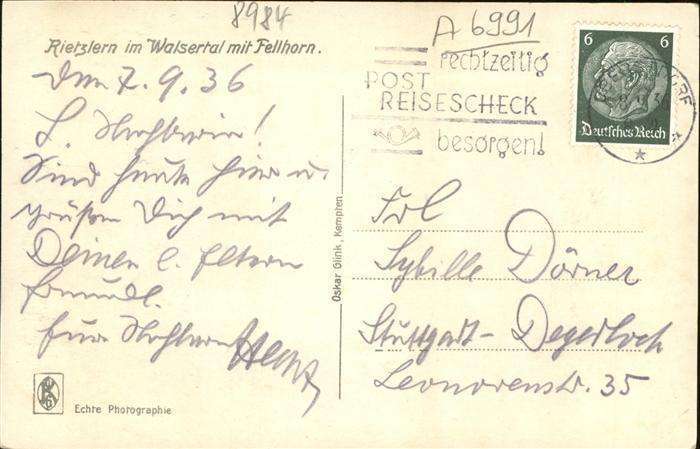 8984
A 6991
Rietzlern im Walsertal mit Fellhorn.
rechtzeitig
POST
REISESCHECK
besorgen!
6 6
Deutsches Reich
Den 7.9.36
L. Nachbarin!
Sind heute hier u.
grüßen Dich mit
Deinen l. Eltern
freundl.
Eure Nachbarn
Oskar Glink, Kempten
Frl
Sybille Dörner
Stuttgart-Degerloch
Leonorenstr. 35
Echte Photographie